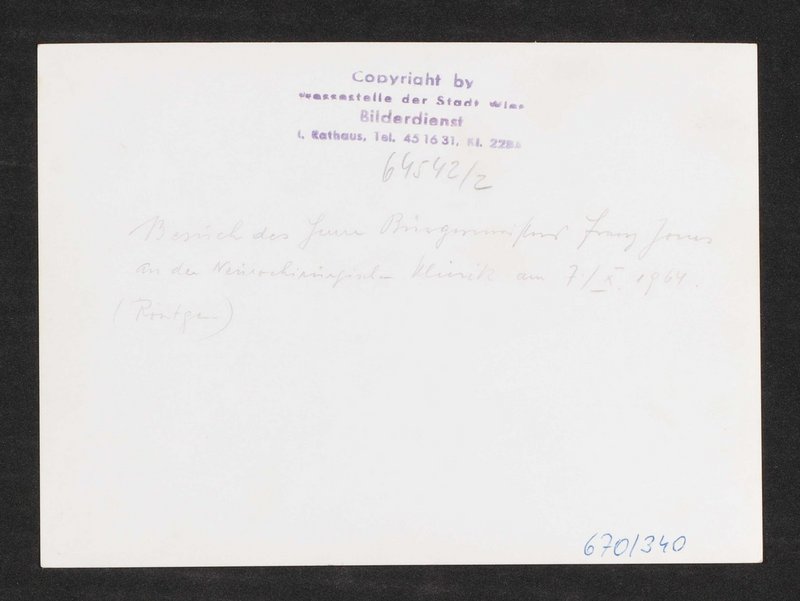 Copyright by
Pressestelle der Stadt Wien
Bilderdienst
I. Rathaus, Tel. 45 16 31, Kl. 228
64542/2
Besuch des Herrn Bürgermeisters Franz Jonas
an der Neurochirurgischen Klinik am 7./X. 1964.
(Röntgen)
670/340